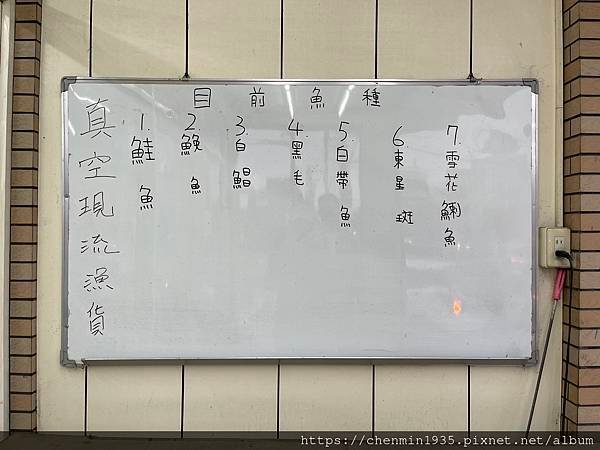 目前魚種
真空現流漁貨
1.鮭魚
2.鮸魚
3.白鯧
4.黑毛
5.白帶魚
6.東星斑
7.雪花鯻魚
https://chenmin1935.pixnet.net/album